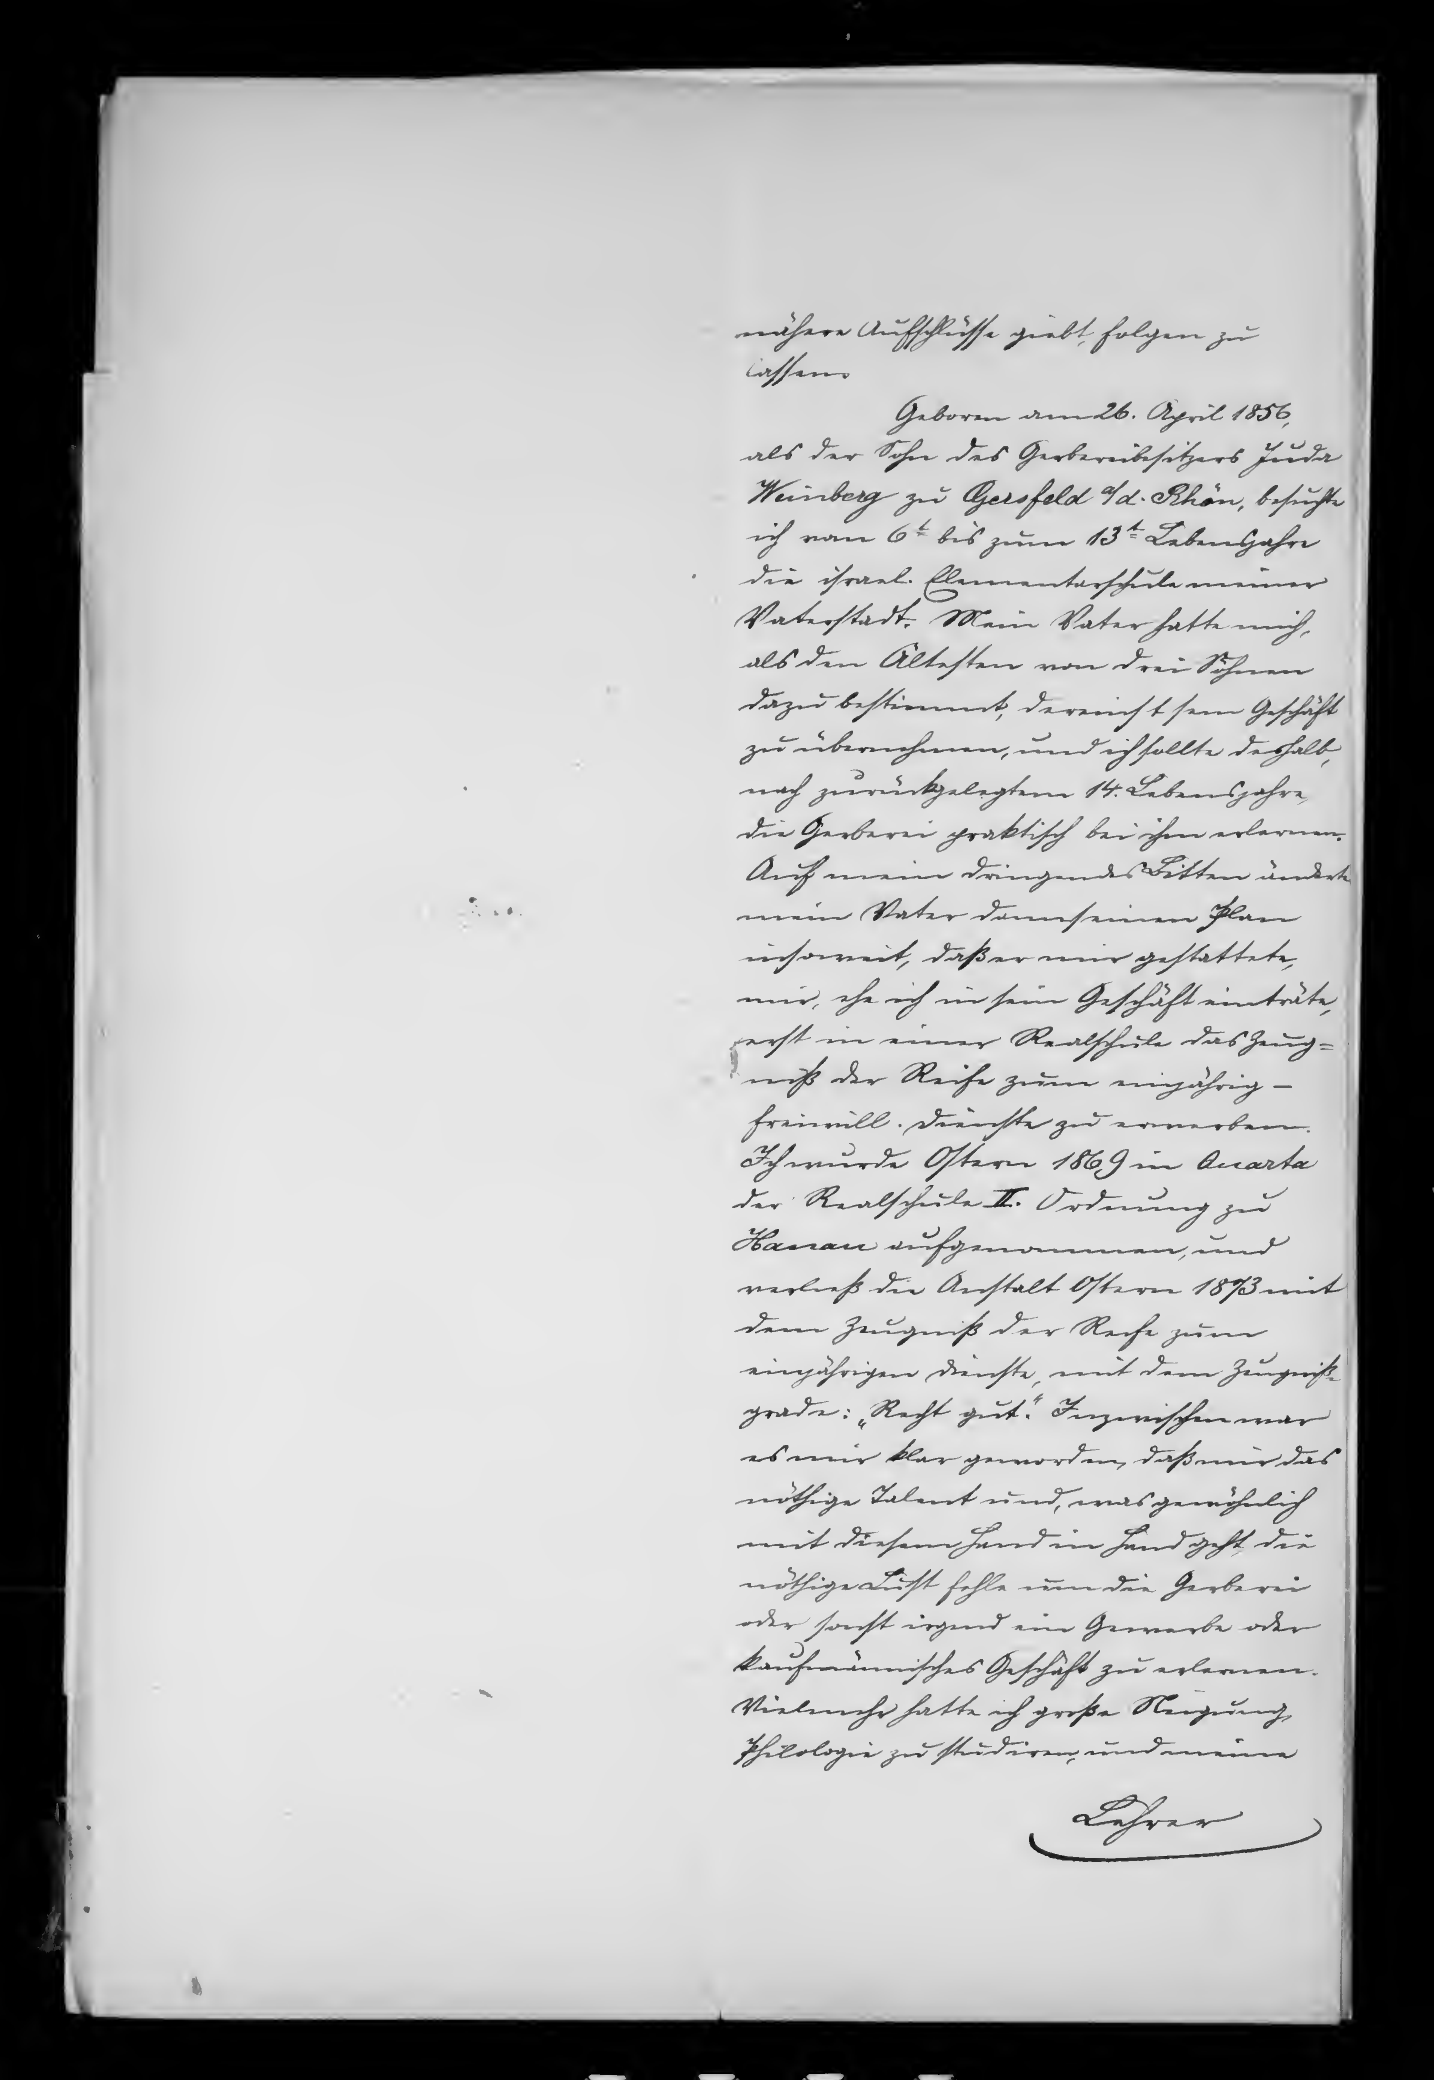 nähere Aufschlüsse giebt, folgen zu
lassen.
Geboren am 26. April 1856,
als der Sohn des Gerbereibesitzers Juda
Weinberg zu Gersfeld a/d. Rhön, besuchte
ich vom 6t bis zum 13t Lebensjahre
die israel. Elementarschule meiner
Vaterstadt. Mein Vater hatte mich,
als den Ältesten von drei Söhnen
dazu bestimmt, dereinst sein Geschäft
zu übernehmen, und ich sollte deshalb,
nach zurückgelegtem 14. Lebensjahre,
die Gerberei praktisch bei ihm erlernen.
Auf mein dringendes Bitten änderte
mein Vater dann seinen Plan
insoweit, daß er mir gestattete,
mir, ehe ich in sein Geschäft einträte,
erst in einer Realschule das Zeug=
niß der Reife zum einjährig –
freiwill. Dienste zu erwerben.
Ich wurde Ostern 1869 in Quarta
der Realschule II. Ordnung zu
Hanau aufgenommen, und
verließ die Anstalt Ostern 1873 mit
dem Zeugniß der Reife zum
einjährigen Dienste, mit dem Zeugniß-
grade: „Recht gut." Inzwischen war
es mir klar geworden, daß mir das
nöthige Talent und, was gewöhnlich
mit diesem Hand in Hand geht, die
nöthige Lust fehle um die Gerberei
oder sonst irgend ein Gewerbe oder
kaufmännisches Geschäft zu erlernen.
Vielmehr hatte ich große Neigung,
Philologie zu studiren, und meine
Lehrer